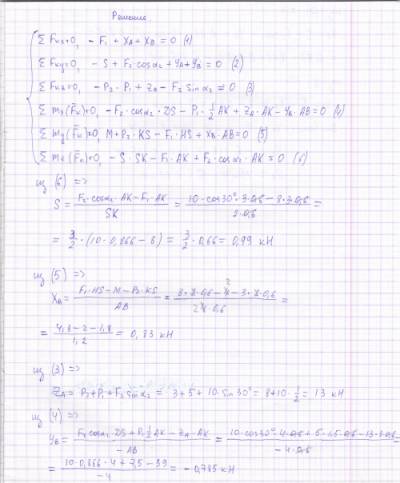 Решение
∑ Fkx=0, - F₁ + XA + XB = 0 (1)
∑ Fky=0, - S + F₂·cosα₂ + YA + YB = 0 (2)
∑ Fkz=0, - P₂ - P₁ + ZA - F₂ sinα₂ = 0 (3)
∑ mx(F̄k)=0, - F₂·cosα₂·DS - P₁·½ AK + ZA·AK - YB·AB = 0 (4)
∑ my(F̄k)=0, M + P₂·KS - F₁·HS + XB·AB = 0 (5)
∑ mz(F̄k)=0, - S·SK - F₁·AK + F₂·cosα₂·AK = 0 (6)
из (6) =>
S = (F₂·cosα₂·AK - F₁·AK)/SK = (10·cos30°·3·0,6 - 8·3·0,6)/(2·0,6) =
= 3/2·(10·0,866 - 8) = 3/2·0,66 = 0,99 кН
из (5) =>
XB = (F₁·HS - M - P₂·KS)/AB =
= (4,8 - 2 - 1,8)/1,2 = 0,83 кН
из (3) =>
ZA = P₂ + P₁ + F₂ sinα₂ = 3 + 5 + 10·sin30° = 8 + 10·½ = 13 кН
из (4) =>
YB = (F₂ cosα₂·DS + P₁½AK - ZA·AK)/-AB =
= (10·0,866·4 + 7,5 - 39)/-4 = - 0,785 кН